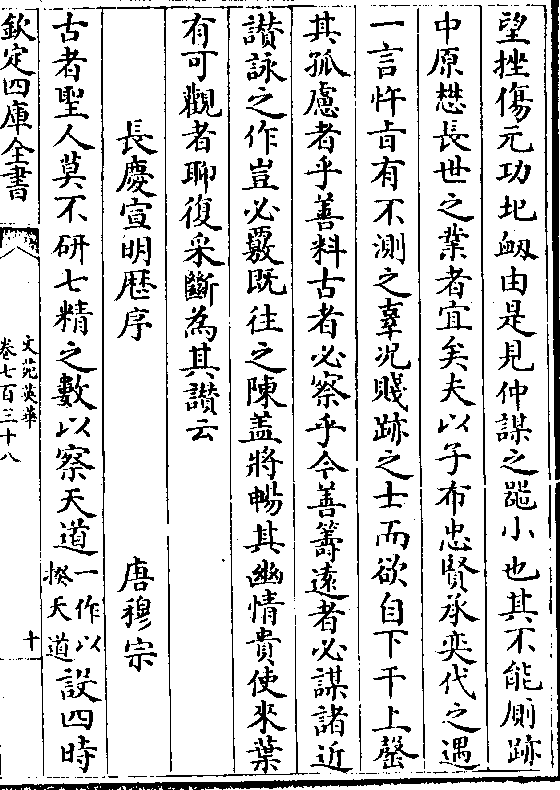 望挫傷元功圮衂由是見仲謀之噐小也其不能厠跡
中原懋長世之業者宜矣夫以子布忠賢承奕代之遇
一言忤㫖有不測之辜况賤跡之士而欲自下干上罄
其孤慮者乎善料古者必察乎今善籌遠者必謀諸近
讃詠之作豈必覈既往之陳盖將暢其幽情貴使來葉
有可觀者聊復采斷為其讃云
長慶宣明厯序 唐穆宗
古者聖人莫不研七精之數以察天道一作以揆天道設四時
欽定四庫全書
文苑英華
卷七百三十八
十